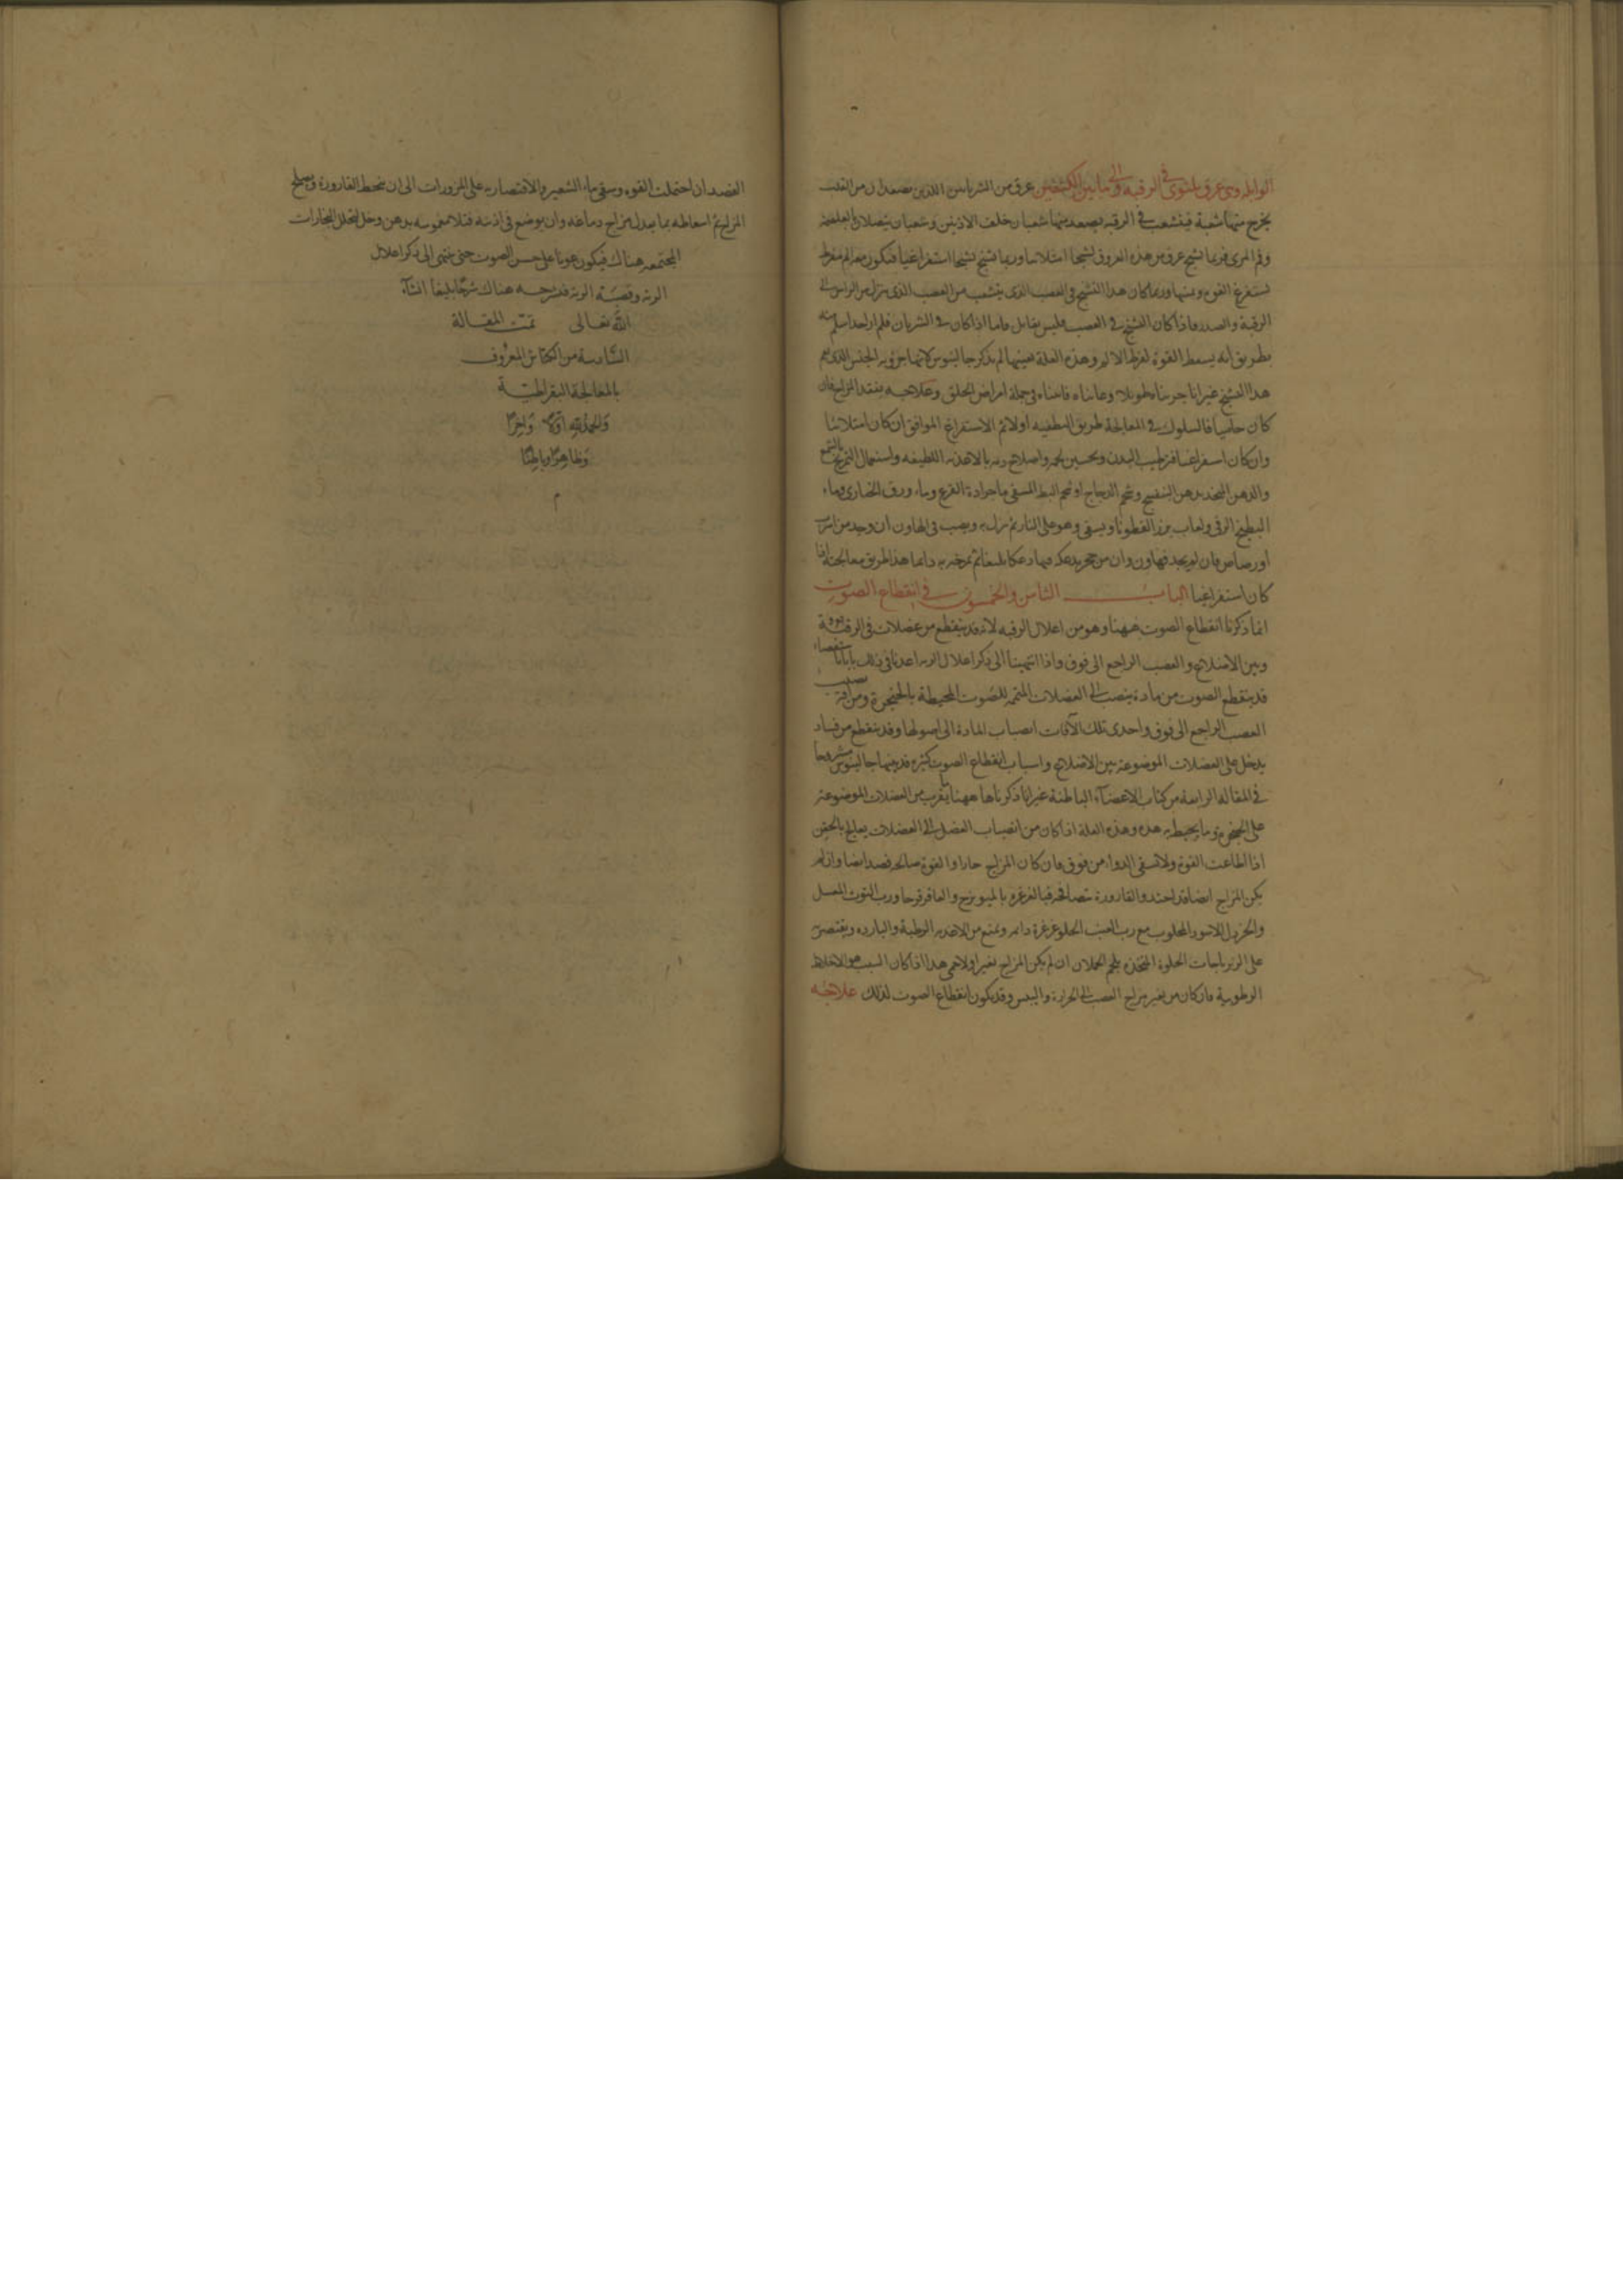 الوابله وهى عرق يلتوى فى الرقبة والى ما بين الكتفين عرق من الشريانين اللذين يصعدان من القلب
يخرج منهما شعبة فيتشعب فى الرقبه يصعد منها شعبتان خلف الاذنين وشعبتان يتصلان بالغلصمة
وفم المرى فربما تشنج عرق من هذه العروق تشنجا امتلائيا وربما تشنج تشنجا استفراغيا فيكون معه الم مفرط
يستفرغ القوه وينهيها وربما كان هذا التشنج فى العصب الذى يتشعب من العصب الذى ينزل من الراس الى
الرقبة والصدر فاذا كان التشنج فى العصب فليس بقاتل فاما اذا كان فى الشريان فلم ار احدا سلم منه
بطريق انه يسقط القوة لفرط الالم وهذه العلة بعينها لم يذكر جالينوس كانها جزويه الجنس الذى يعم
هذا التشنج غير انا جربناه طويلا وعايناه فاثبتناه فى جملة امراض الحلق وعلاجه يتفقد المزاج فان
كان حاميا فالسلوك فى المعالجة طريق التطفيه اولا ثم الاستفراغ الموافق ان كان امتلائيا
وان كان استفراغيا فترطيب البدن وتحسين لحمه واصلاح دمه بالاغذيه اللطيفه واستعمال التمريخ بالشمع
والدهن المتخذ بدهن البنفسج وشحم الدجاج او شحم البط المسقى ماء جرادة القرع وماء ورق الخبازى وماء
البطيخ الرقى ولعاب بزر القطونا ويسقى وهو على النار ثم ينزل به ويصب فى الهاون ان وجد من اسرب
او رصاص فان لم يجد فهاون وان من حجر يدعكه فيها دعكا بليغا ثم تمرخه به دائما هذا طريق معالجته اذا
كان استفراغيا الباب الثامن والخمسون فى انقطاع الصوت
انما ذكرنا انقطاع الصوت ههنا وهو من اعلال الرقبه لانه قد ينقطع من عضلات فى الرقبة
وبين الاضلاع والعصب الراجع الى فوق واذا انتهينا الى ذكر اعلال الريه اعدنا فى ذلك بابا باستقصاء
قد ينقطع الصوت من مادة ينصب الى العضلات المتممه للصوت المحيطة بالحنجرة ومن آفة تصيب
العصب الراجع الى فوق واحدى تلك الآفات انصباب المادة الى اصولها وقد ينقطع من فساد
يدخل على العضلات الموضوعة بين الاضلاع واسباب انقطاع الصوت كثيره قد بينها جالينوس مشروحا
فى المقالة الرابعة من كتاب الاعضآء الباطنة غير انا ذكرناها ههنا بالقرب من العضلات الموضوعة
على الحنجرة وما يحيط به هذه وهذه العلة اذا كان من انصباب الفضل الى العضلات يعالج بالحقن
اذا اطاعت القوة ولا تسقى الدواء من فوق فان كان المزاج حارا والقوة صالحه فصد ايضا وان لم
يكن المزاج ايضا قد احتد والقارورة نضجة فبالغرغره بالميويزج والعاقرقرحا ورب التوت المعسل
والخردل الاسود المحلوب مع رب العنب الحلو غرغرة دائمه ويمنع من الاغذيه الرطبة والبارده ويقتصر به
على الزيرباجات الحلوة المتخذه بلحم الحملان ان لم يكن المزاج تغير او لا حمى هذا اذا كان السبب هو الاخلاط
الرطوبية فان كان من تغير مزاج العصب الى الحرارة واليبس وقد يكون انقطاع الصوت لذلك علاجه
الفصد ان احتملت القوه وسقى ماء الشعير والاقتصار به على المزورات الى ان تنحط القارورة ويصلح
المزاج ثم اسعاطه بما يعدل مزاج دماغه وان يوضع فى اذنه فتيلة مغموسه بدهن وخل لتحلل البخارات
المجتمعه هناك فيكون عونا على حسن الصوت حتى ننتهى الى ذكر اعلال
الريه وقصبة الريه فنشرحه هناك شرحا بليغا انشآء
الله تعالى تمت المقالة
السادسة من الكناش المعروف
بالمعالجة البقراطية
والحمد لله اولا وآخرا
وظاهرا وباطنا
م